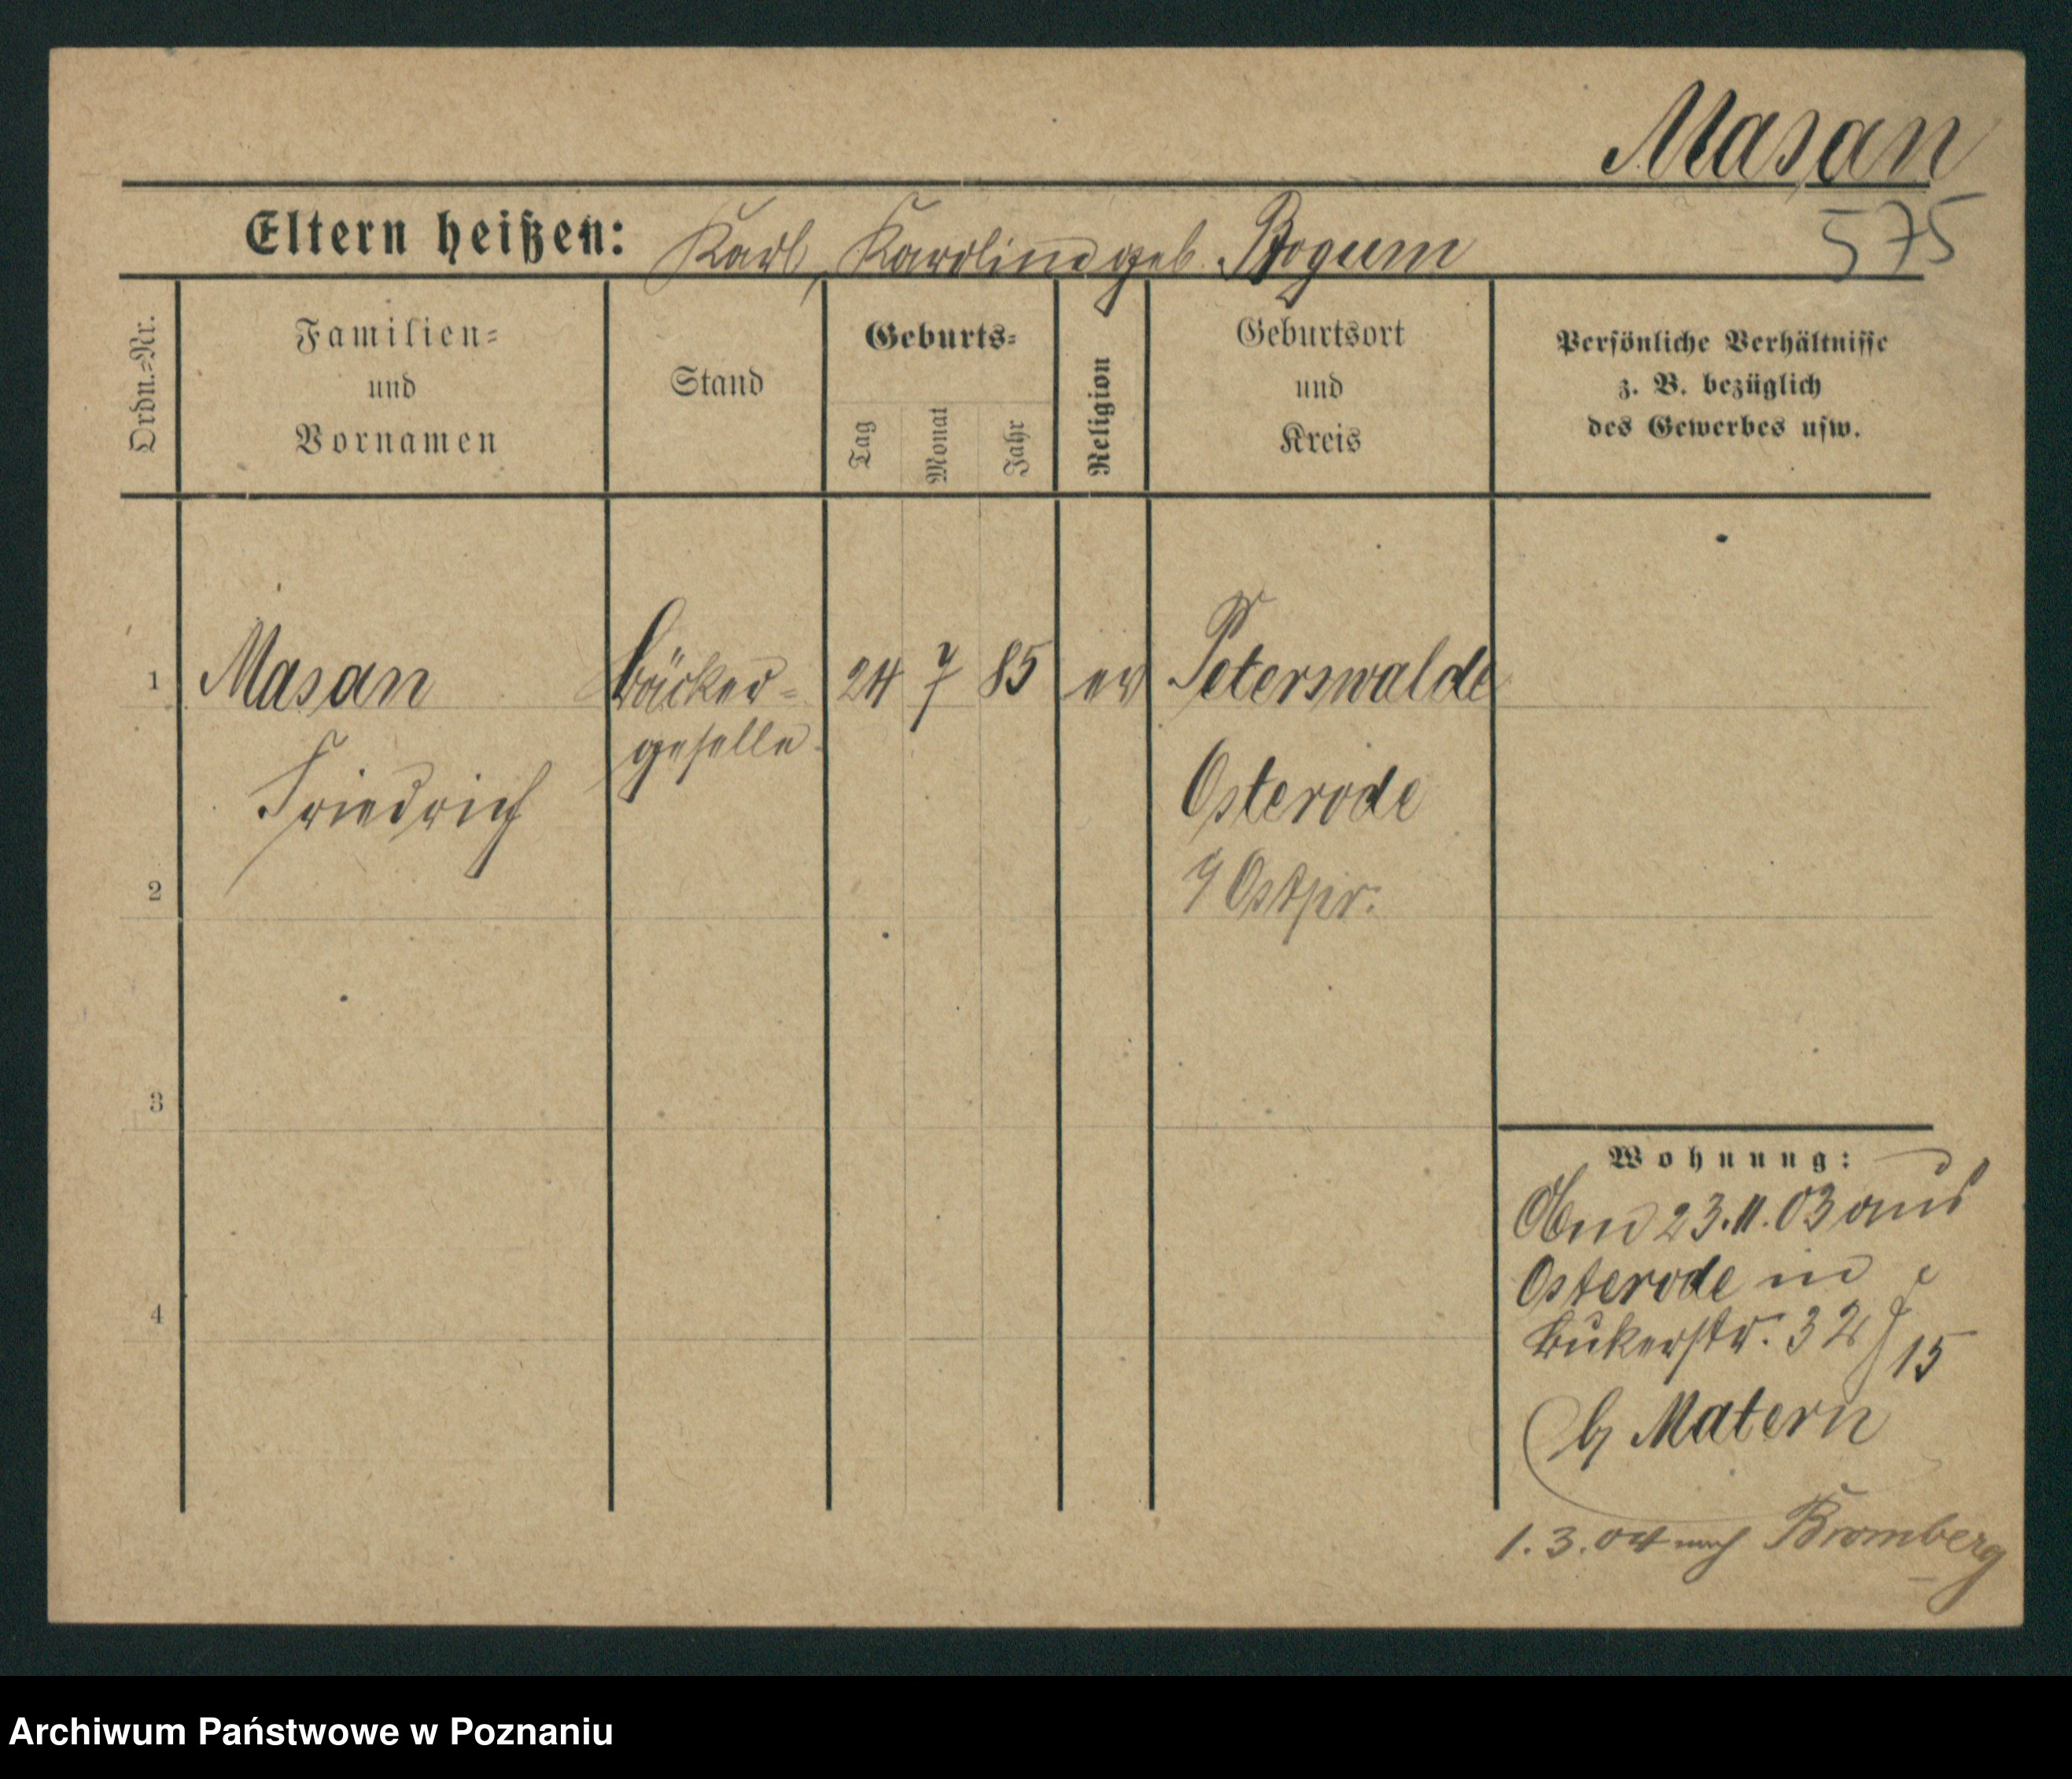 Masan
575
Eltern heißen: Karl, Karoline geb. Bogum
Ordn.-Nr.
Familien-
und
Vornamen
Stand
Geburts-
Tag
Monat
Jahr
Religion
Geburtsort
und
Kreis
Persönliche Verhältnisse
z. B. bezüglich
des Gewerbes usw.
1 Masan Bäcker- 24 7 85 ev Peterswalde
geselle
Friedrich
Osterode
Ostpr.
2
3
4
Wohnung:
23.11.03 aus
Osterode in
Bukerstr. 32
15
b/ Matern
1.3.04 nach Bromberg
Archiwum Państwowe w Poznaniu